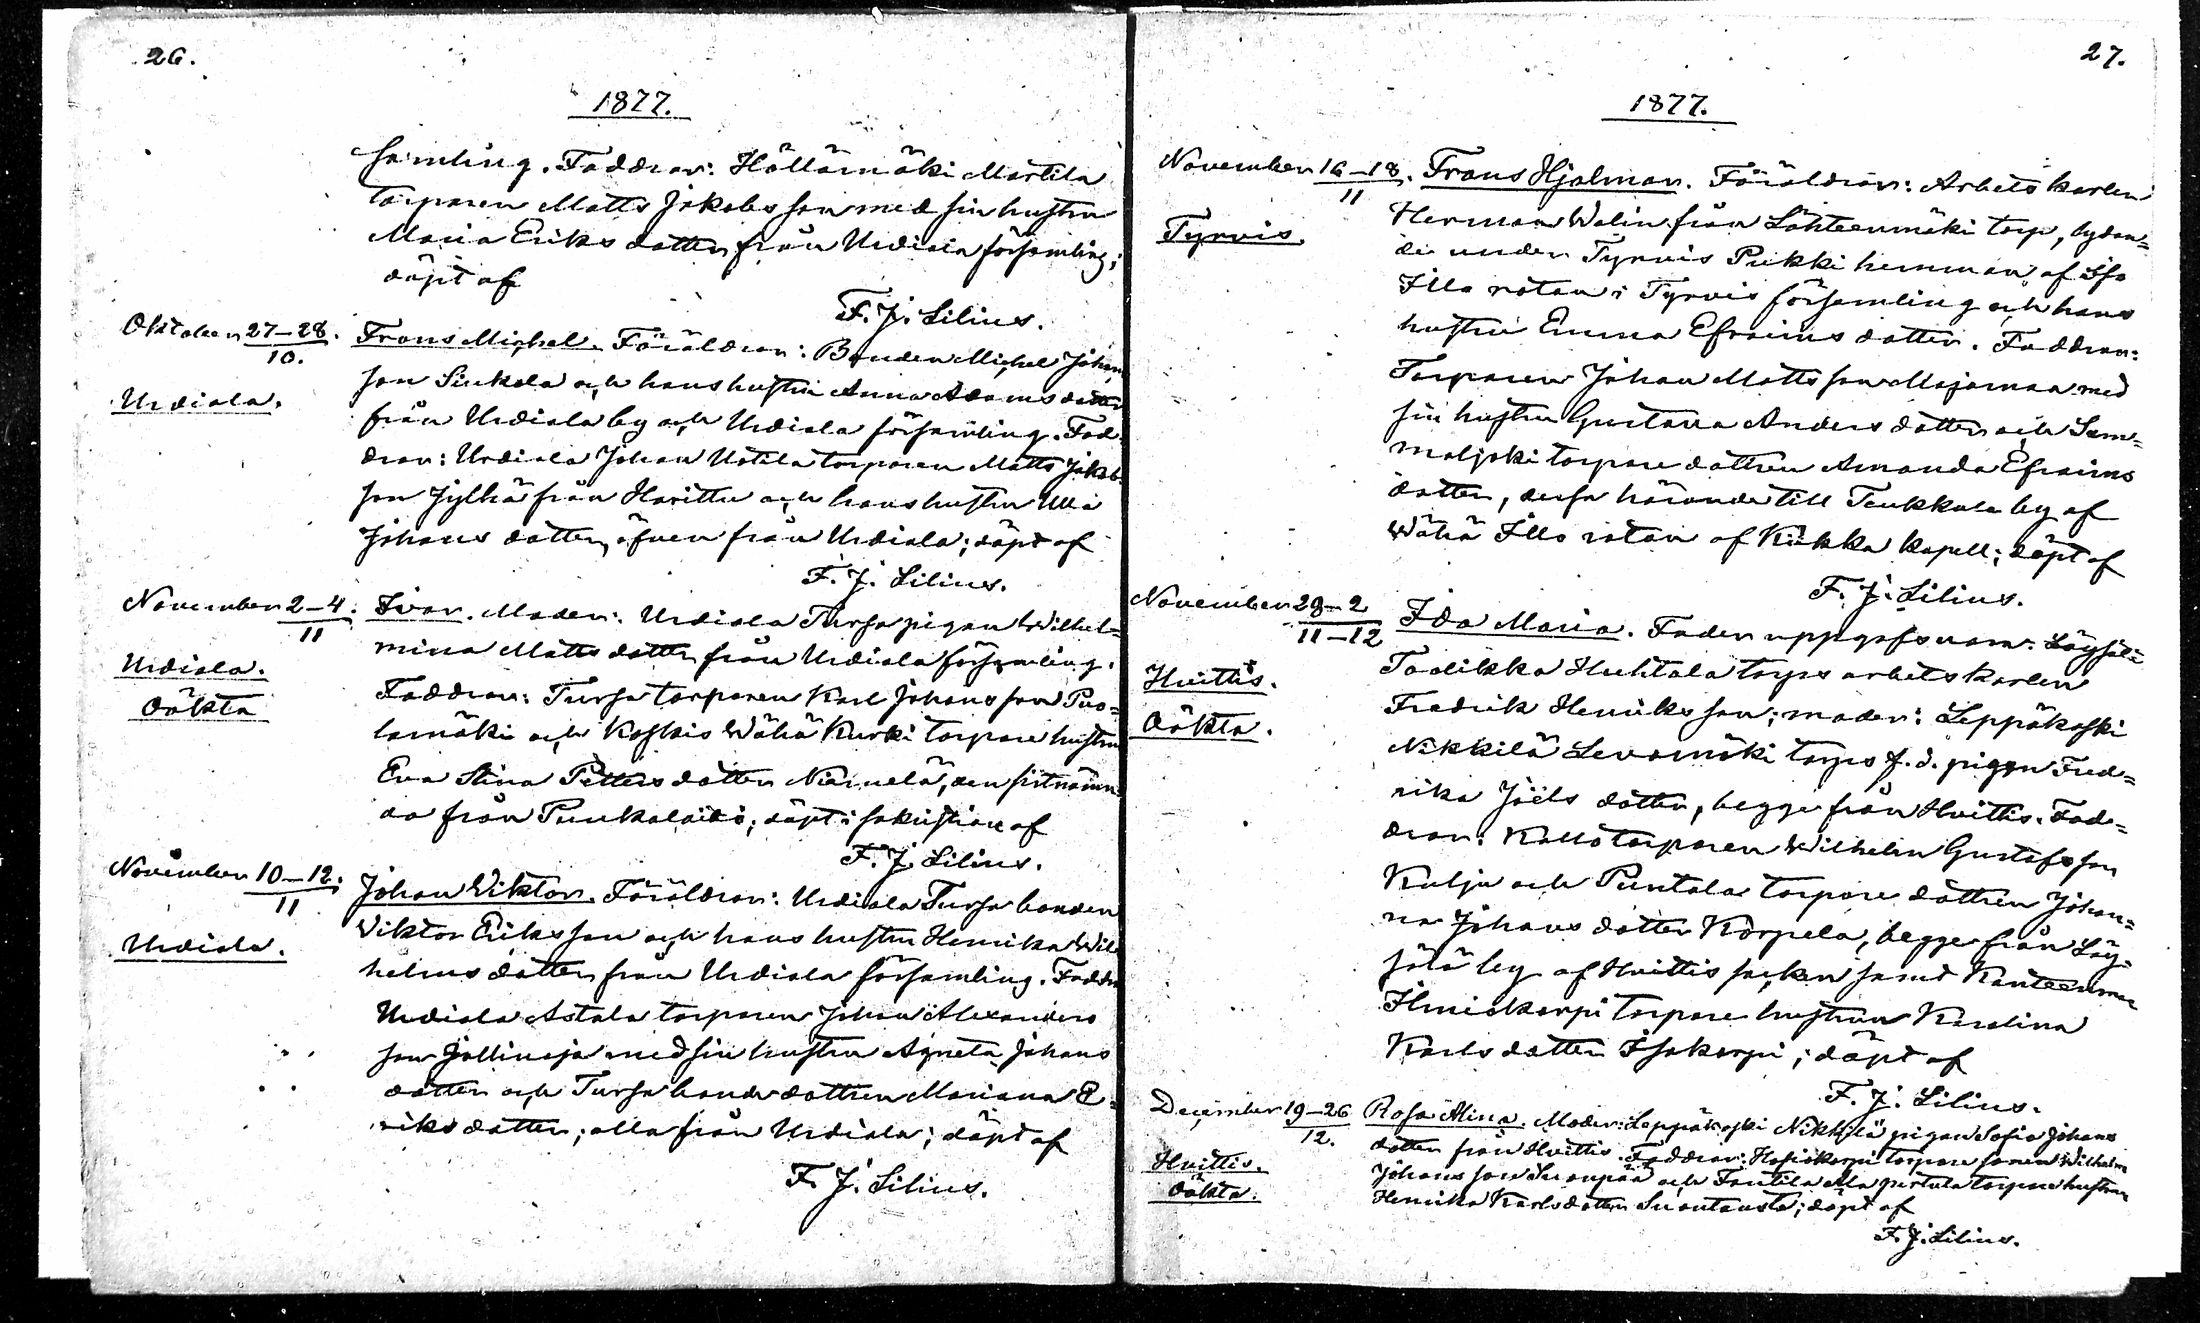 26.
1877.
samling. Faddrar: Hällämäki Martila
torparen Matts Jakobsson med sin hustru
Maria Eriksdotter från Urdiala församling;
döpt af
F. J. Lilius.
Oktober 27–28.
10.
Urdiala.
Frans Michel. Föräldrar: Bonden Michel Johans
son Sinkola och hans hustru Anna Adams dotter
från Urdiala by och Urdiala församling. Fad-
drar: Urdiala Johan Uotila torparen Matts Jakobs
son Jylhä från Havittu och hans hustru Ulla
Johans dotter, äfven från Urdiala; döpt af
F. J. Lilius.
November 2–4.
11
Urdiala.
Oäkta
Ivar. Moder: Urdiala Tursa pigan Wilhel=
mina Matts dotter från Urdiala församling.
Faddrar: Tursa torparen Karl Johansson Puo=
lamäki och Koskis Wähä Kurki torpare hustrun
Eva Stina Petters dotter Niemelä, den sistnämn=
da från Punkalaidio; döpt i sakristian af
F. J. Lilius.
November 10–12.
11
Urdiala.
Johan Wiktor. Föräldrar: Urdiala Tursa bonden
Viktor Eriksson och hans hustru Henrika Wil
helms dotter från Urdiala församling. Faddrar
Urdiala Astala torparen Johan Alexanders
son Jällinoja med sin hustru Agneta Johans
dotter och Tursa bonde dottren Mariana E=
riks dotter; alla från Urdiala; döpt af
F. J. Lilius.
27.
1877.
November 16–18.
11
Tyrvis.
Frans Hjalmar. Föräldrar: Arbetskarlen
Herman Walin från Lähteenmäki torp, lydan=
de under Tyrvis Pukki hemman af Iso
Illo rotan i Tyrvis församling och hans
hustru Emma Efraims dotter. Faddrar:
Torparen Johan Matts son Majamaa med
sin hustru Gustava Anders dotter och Sam=
maljoki torpare dottren Amanda Efraims
dotter, dessa hörande till Taukkala by af
Wähä Illo rotan af Kiikka kapell; döpt af
F. J. Lilius.
November 28–2
11–12
Huittis.
Oäkta.
Ida Maria. Fader uppgafs vara: Löysälä
Tadikka Huhtala torps arbetskarlen
Fredrik Henriksson; moder: Leppäkoski
Nikkilä Levomäki torps f. d. pigan Fred=
rika Joëls dotter, begge från Huittis. Fad=
drar: Kallo torparen Wilhelm Gustafsson
Kulju och Puntala torpare dottren Johan=
na Johans dotter Korpela, begge från Löy=
sälä by af Huittis socken samt Kanteenmaa
Ilmiskorpi torpare hustrun Karolina
Karls dotter Isokorpi; döpt af
F. J. Lilius.
December 19–26
12.
Huittis.
Oäkta.
Rosa Alina. Moder: Leppäkoski Nikkilä pigan Sofia Johans
dotter från Huittis. Faddrar: torpare sonen Wilhelm
Johans son Suonpää och Fantila torpare hustrun
Henrika Karls dotter Suontausta; döpt af
F. J. Lilius.